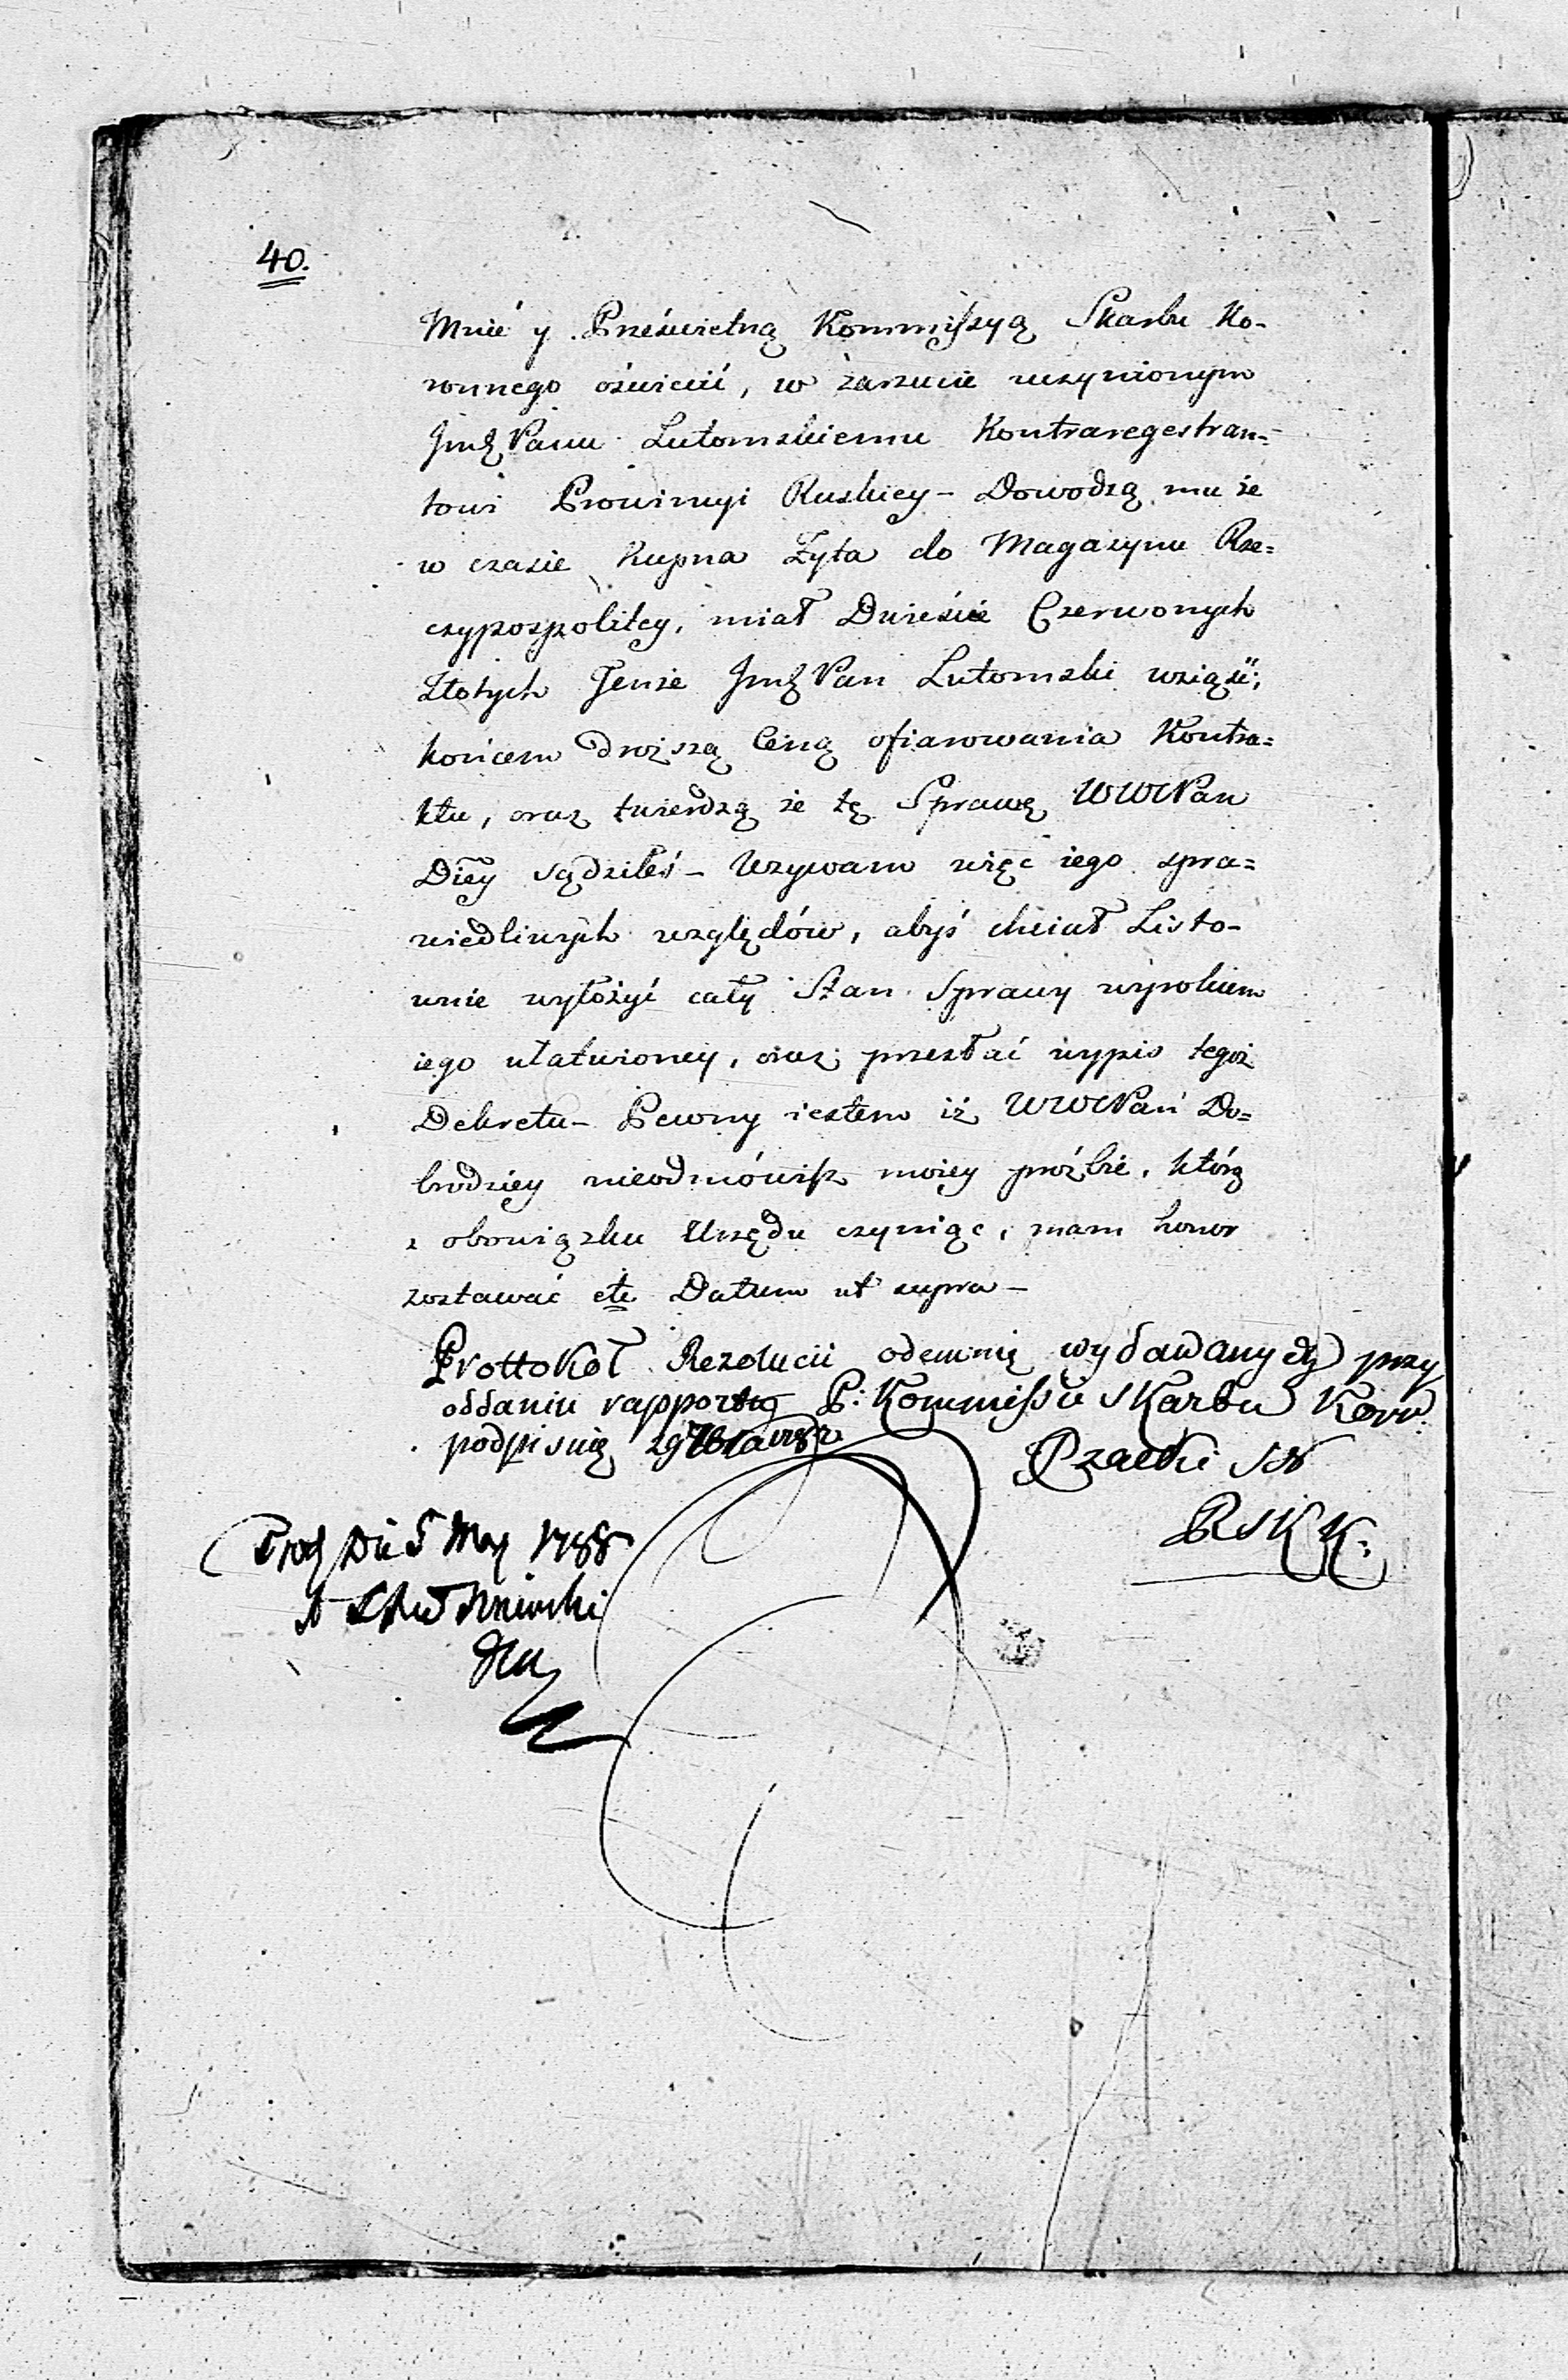 40.
Mnie y Prześwietną Kommissyą Skarbu Ko-
ronnego oświecić, w zarzucie uczynionym
Jmć Panu Lutomskiemu Kontraregestran=
towi Prowincyi Ruskiey - Dowodzą mu że
w czasie kupna Żyta do Magazynu Rze=
czypospolitey, miał Dwieście Czerwonych
Złotych Tenże Jmć Pan Lutomski wziąść,
końcem droższą Ceną ofiarowania Kontra=
ktu, oraz twierdzą że tę Sprawę WWMPan
Dźiey sądziłeś - Wzywam więc iego spra=
wiedliwych względów, abyś chciał Listo-
wnie wyłożyć cały Stan Sprawy wyrokiem
iego ułatwioney, oraz przesłać wypis tegoż
Dekretu - Pewny iestem iż WWMPan Do=
brodziey nieodmówisz moiey proźbie, którą
z obowiązku Urzędu czyniąc, mam honor
zostawać etc Datum ut supra -
Prottokół Rezolucii odemnię wydawanych przy
oddaniu rapportu P: Kommissii Skarbu Koro.
podpisuię 29
PSKK.
Die 5 May 1788